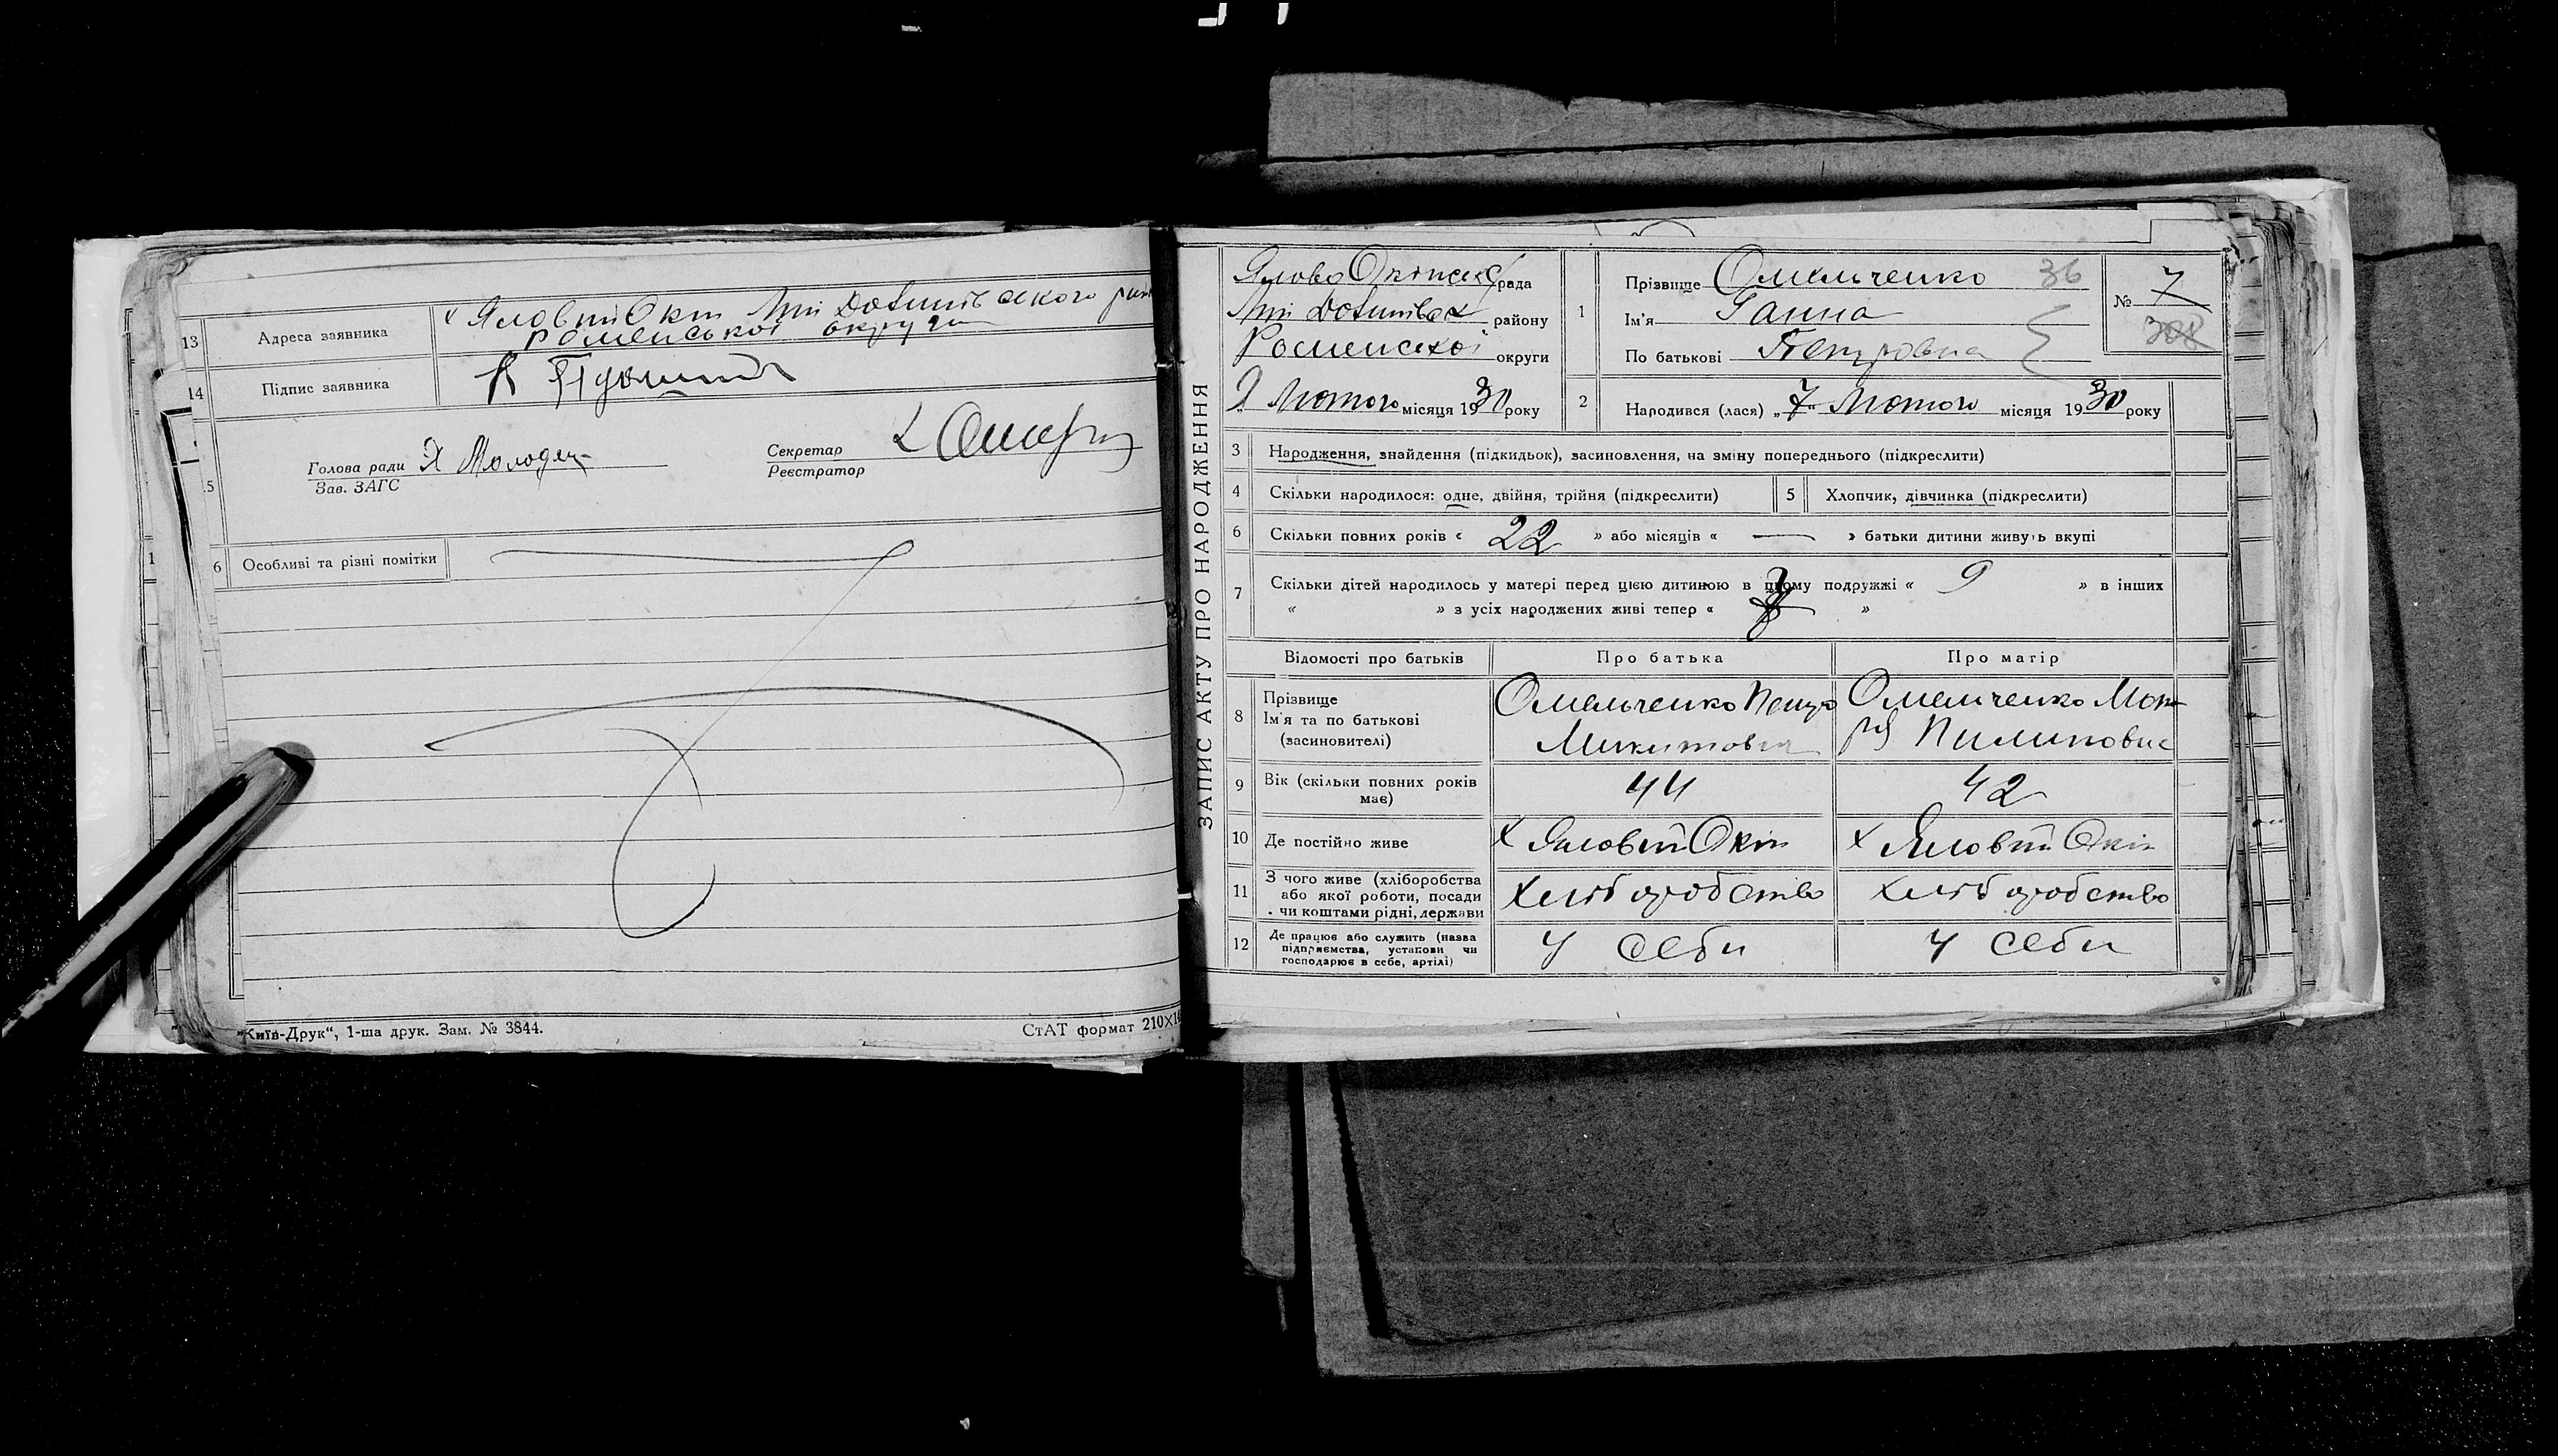 13 Адреса заявника х Яловий Окіп Липоводолинівського рай
Роменської округи
14 Підпис заявника
Голова ради Х Молодец
Зав. ЗАГС
Секретар
Реєстратор
Особливі та різні помітки
"Київ-Друк“, 1-ша друк. Зам. № 3844.
СтАТ формат 210×
ЗАПИС АКТУ ПРО НАРОДЖЕННЯ
Ялово Окіпськ рада
району
Роменської округи
9 Лютого місяця 1930 року
1 Прізвище Омельченко 36
Ім'я Ганна
По батькові Петровна
№ 7
308
2 Народився (лася) „7“ Лютого місяця 1930 року
3 Народження, знайдення (підкидьок), засиновлення, на зміну попереднього (підкреслити)
4 Скільки народилося: одне, двійня, трійня (підкреслити) 5 Хлопчик, дівчинка (підкреслити)
6 Скільки повних років « 22 » або місяців « — » батьки дитини живуть вкупі
7 Скільки дітей народилось у матері перед цією дитиною в цьому подружжі « 9 » в інших
« » з усіх народжених живі тепер « »
Відомості про батьків Про батька Про матір
8 Прізвище
Ім'я та по батькові
(засиновителі)
Омельченко Петро
Микитович
Омельченко Мот
ря Пилиповна
9 Вік (скільки повних років
має) 44 42
10 Де постійно живе х Яловий Окіп х Яловий Окіп
11 З чого живе (хліборобства
або якої роботи, посади
чи коштами рідні, держави
хліборобство хліборобство
12 Де працює або служить (назва
підприємства, установи чи
господарює в себе, артілі)
У себи У себи